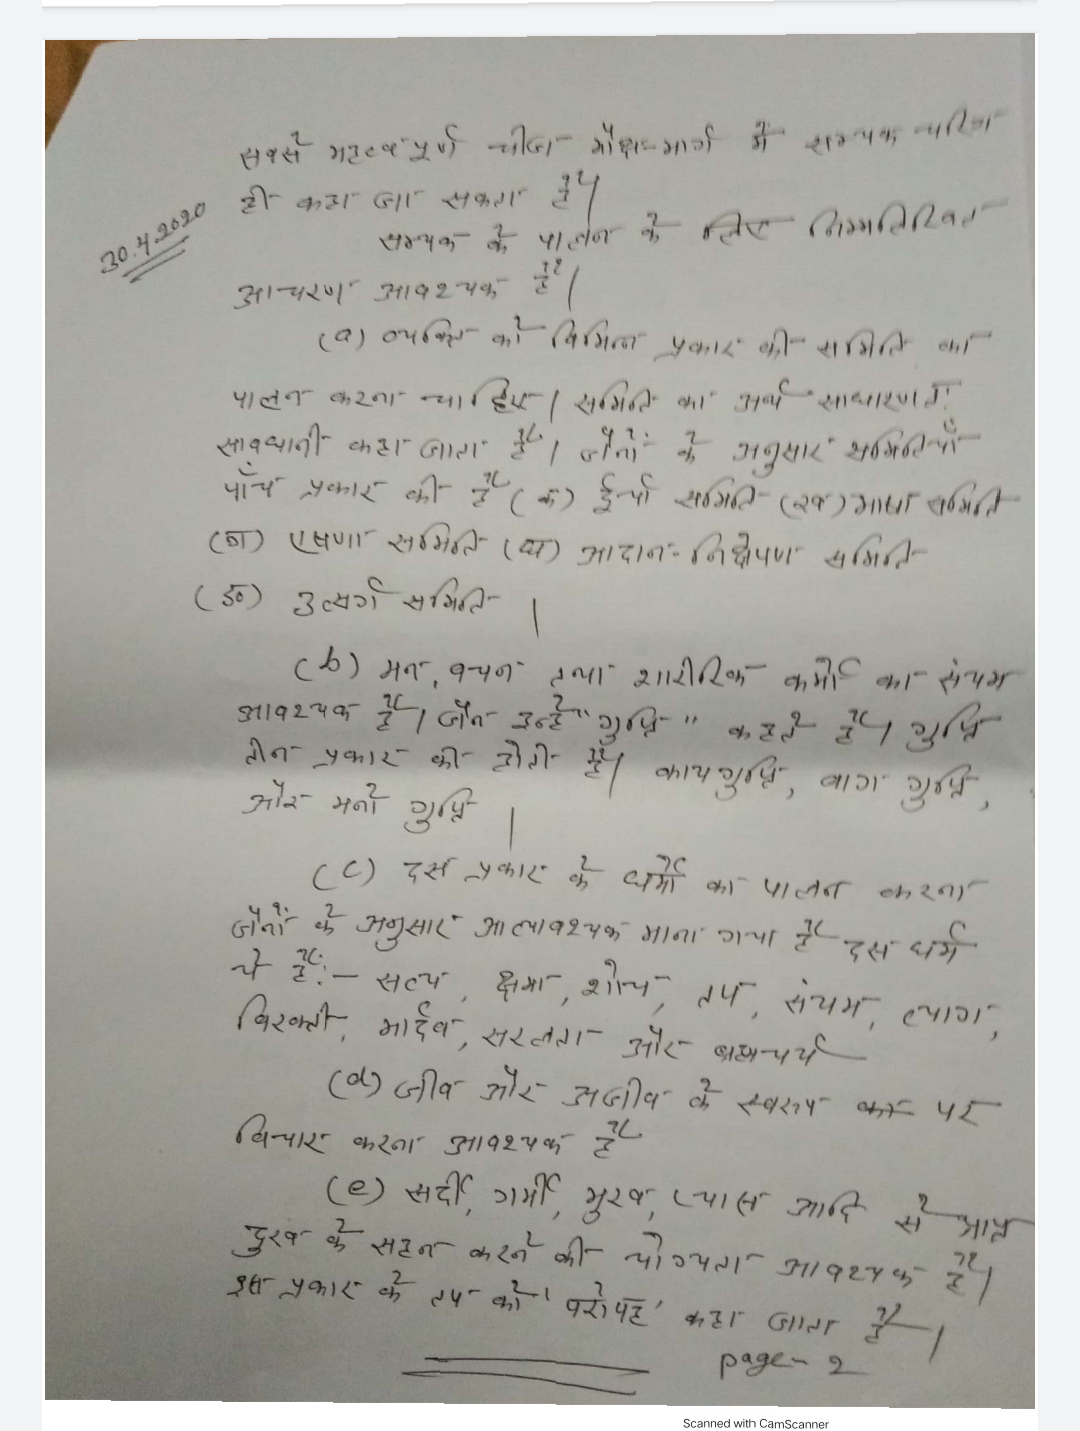 सबसे महत्वपूर्ण चीज मोक्ष-मार्ग में सम्यक चरित्र
ही कहा जा सकता है।
30.4.2020
सम्यक के पालन के लिए निम्नलिखित
आचरण आवश्यक है।
(a) व्यक्ति को विभिन्न प्रकार की समिति का
पालन करना चाहिए। समिति का अर्थ साधारणतः
सावधानी कहा जाता है। जैनों के अनुसार समितियाँ
पाँच प्रकार की है (क) ईर्या समिति (ख) भाषा समिति
(ग) एषणा समिति (घ) आदान-निक्षेपण समिति
(ङ) उत्सर्ग समिति।
(b) मन, वचन तथा शारीरिक कर्मों का संयम
आवश्यक है। जैन इन्हें "गुप्ति" कहते हैं। गुप्ति
तीन प्रकार की होती है। कायगुप्ति, वाग गुप्ति,
और मनो गुप्ति।
(c) दस प्रकार के धर्मों का पालन करना
जैनों के अनुसार आत्यावश्यक माना गया है दस धर्म
ये हैं:- सत्य, क्षमा, शौच, तप, संयम, त्याग,
विरक्ती, मार्दव, सरलता और ब्रह्मचर्य
(d) जीव और अजीव के स्वरूप पर
विचार करना आवश्यक है
(e) सर्दी, गर्मी, भुख, प्यास आदि से प्राप्त
दुख के सहन करने की योग्यता आवश्यक है।
इस प्रकार के तप को 'परोषह' कहा जाता है।
page-2
Scanned with CamScanner